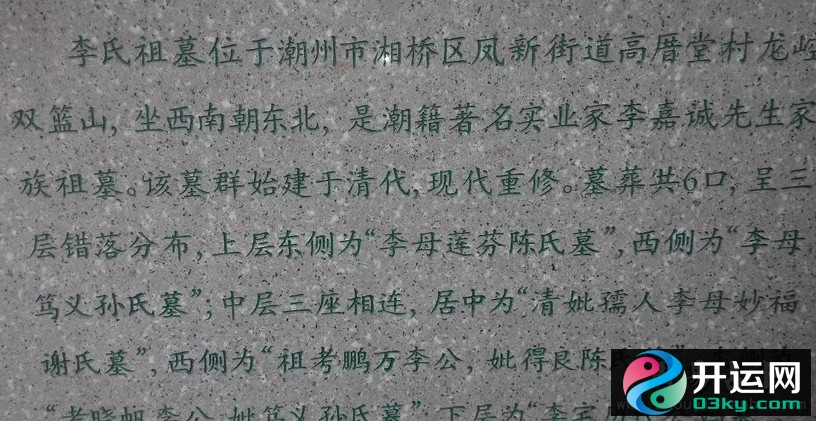 李氏祖墓位于潮州市湘桥区凤新街道高厝堂村龙
双篮山，坐西南朝东北，是潮籍著名实业家李嘉诚先生家
族祖墓。该墓群始建于清代，现代重修。墓葬共6口，呈三
层错落分布，上层东侧为“李母莲芬陈氏墓”，西侧为“李母
笃义孙氏墓”；中层三座相连，居中为“清妣孺人李母妙福
谢氏墓”，西侧为“祖考鹏万李公，妣得良陈
“考晓帆李公 妣笃义孙氏墓” 下层为“李
开运网
03ky.com